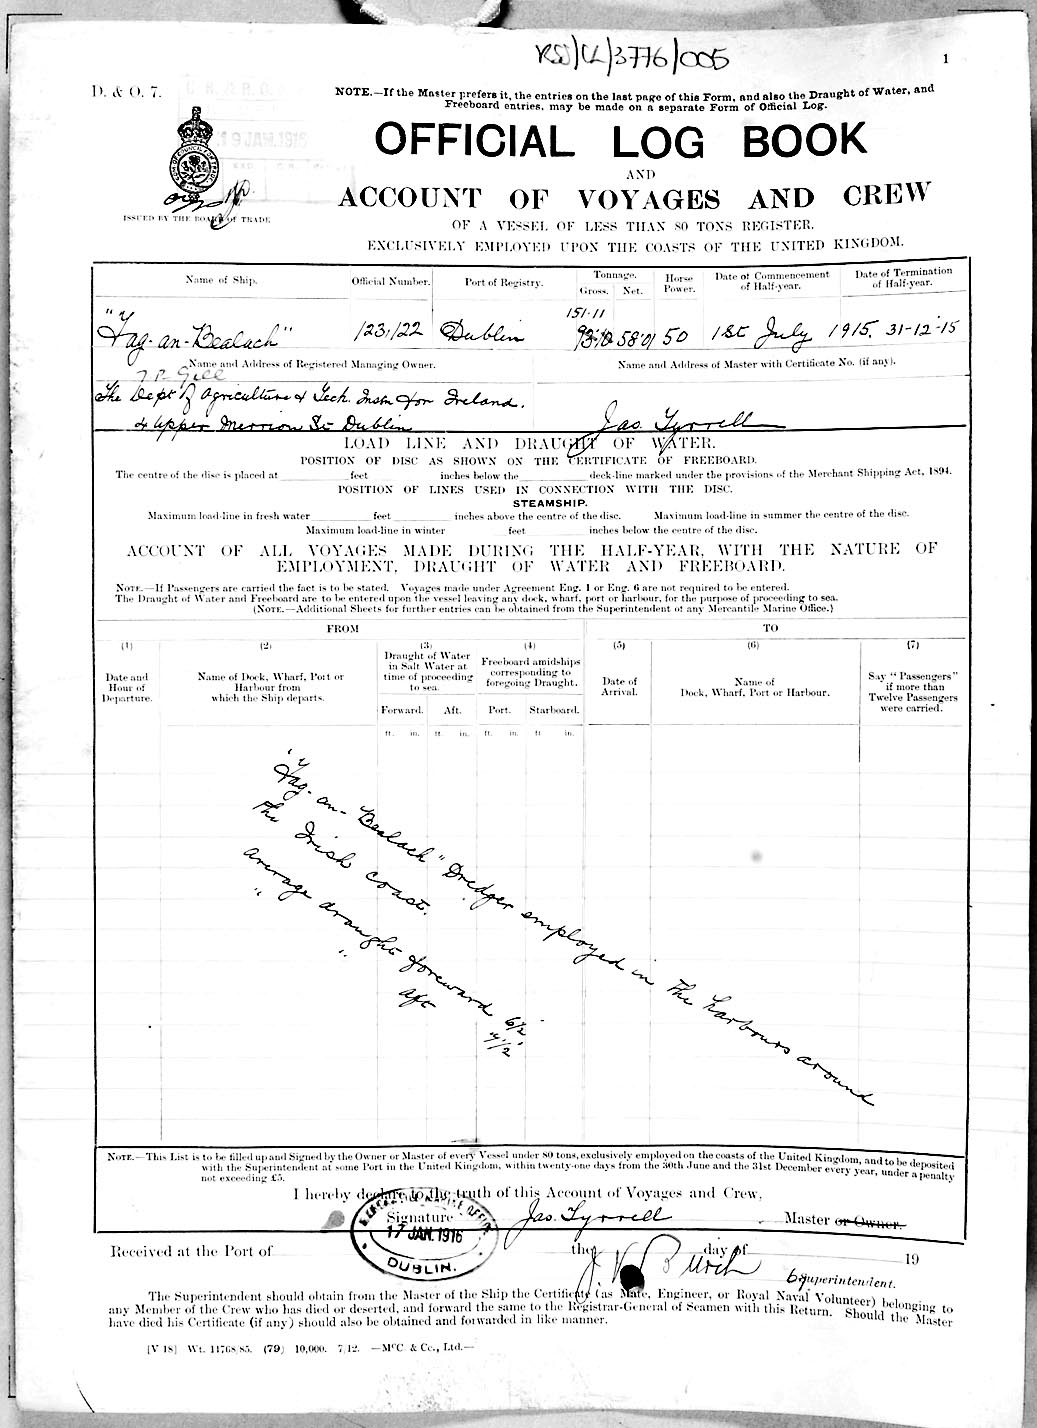 RSS/CL/3776/005
1
D. & O. 7.
NOTE.—If the Master prefers it, the entries on the last page of this Form, and also the Draught of Water, and
Freeboard entries, may be made on a separate Form of Official Log.
OFFICIAL LOG BOOK
AND
ACCOUNT OF VOYAGES AND CREW
ISSUED BY THE BOARD OF TRADE
OF A VESSEL OF LESS THAN 80 TONS REGISTER,
EXCLUSIVELY EMPLOYED UPON THE COASTS OF THE UNITED KINGDOM.
Name of Ship. Official Number. Port of Registry. Tonnage. Gross. Net. Horse Power. Date of Commencement of Half-year. Date of Termination of Half-year.
151·11
"Fag-an-Bealach" 123,122 Dublin 93·10 58·01 50 1st July 1915. 31-12-15
Name and Address of Registered Managing Owner. Name and Address of Master with Certificate No. (if any).
T P Gill
The Dept of Agriculture & Tech. Instn for Ireland.
4 Upper Merrion St Dublin Jas. Tyrrell
LOAD LINE AND DRAUGHT OF WATER.
POSITION OF DISC AS SHOWN ON THE CERTIFICATE OF FREEBOARD.
The centre of the disc is placed at feet inches below the deck-line marked under the provisions of the Merchant Shipping Act, 1894.
POSITION OF LINES USED IN CONNECTION WITH THE DISC.
STEAMSHIP.
Maximum load-line in fresh water feet inches above the centre of the disc. Maximum load-line in summer the centre of the disc.
Maximum load-line in winter feet inches below the centre of the disc.
ACCOUNT OF ALL VOYAGES MADE DURING THE HALF-YEAR, WITH THE NATURE OF
EMPLOYMENT, DRAUGHT OF WATER AND FREEBOARD.
NOTE.—If Passengers are carried the fact is to be stated. Voyages made under Agreement Eng. 1 or Eng. 6 are not required to be entered.
The Draught of Water and Freeboard are to be entered upon the vessel leaving any dock, wharf, port or harbour, for the purpose of proceeding to sea.
(NOTE.—Additional Sheets for further entries can be obtained from the Superintendent of any Mercantile Marine Office.)
FROM TO
(1) (2) (3) (4) (5) (6) (7)
Date and Hour of Departure. Name of Dock, Wharf, Port or Harbour from which the Ship departs. Draught of Water in Salt Water at time of proceeding to sea. Freeboard amidships corresponding to foregoing Draught. Date of Arrival. Name of Dock, Wharf, Port or Harbour. Say "Passengers" if more than Twelve Passengers were carried.
Forward. Aft. Port. Starboard.
ft. in. ft. in. ft. in. ft in.
"Fag-an-Bealach" Dredger employed in the harbours around
the Irish coast.
average draught foreward 6½'
" " aft 7½'
NOTE.—This List is to be filled up and Signed by the Owner or Master of every Vessel under 80 tons, exclusively employed on the coasts of the United Kingdom, and to be deposited
with the Superintendent at some Port in the United Kingdom, within twenty-one days from the 30th June and the 31st December every year, under a penalty
not exceeding £5.
I hereby declare to the truth of this Account of Voyages and Crew,
Signature Jas. Tyrrell Master or Owner.
17 JAN. 1916
DUBLIN.
Received at the Port of the day of 19
Superintendent.
The Superintendent should obtain from the Master of the Ship the Certificate (as Mate, Engineer, or Royal Naval Volunteer) belonging to
any Member of the Crew who has died or deserted, and forward the same to the Registrar-General of Seamen with this Return. Should the Master
have died his Certificate (if any) should also be obtained and forwarded in like manner.
[V 18] Wt. 11768/85. (79) 10,000. 7/12. —McC. & Co., Ltd.—